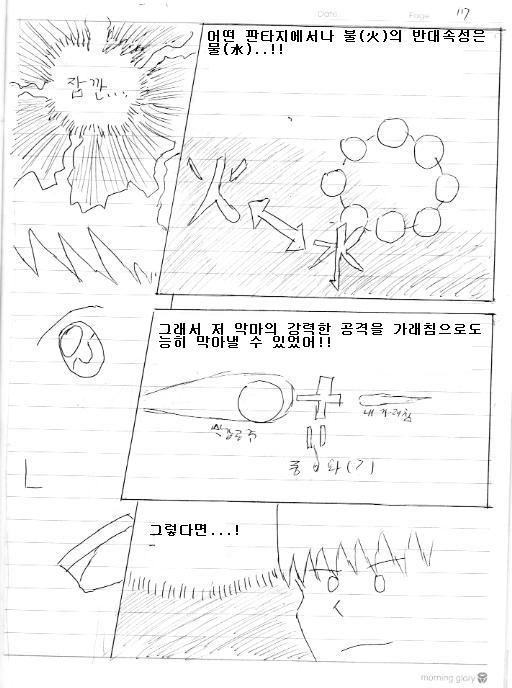 Date
Page
117
잠깐....
어떤 판타지에서나 불(火)의 반대속성은
물(水)..!!
火
水
그래서 저 악마의 강력한 공격을 가래침으로도
능히 막아낼 수 있었어!!
내 가래침
그렇다면...!
morning glory